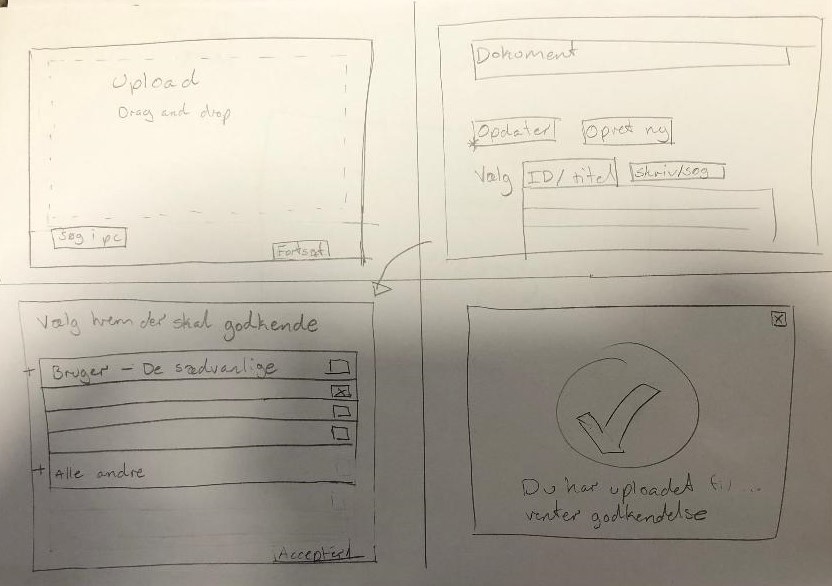 Upload
Drag and drop
Søg i pc
Fortsæt
Dokoment
Opdater
Opret ny
Vælg
ID/titel
skriv/søg
Vælg hvem der skal godkende
Bruger - De sædvanlige
Alle andre
Acceptér
Du har uploadet fil ...
venter godkendelse